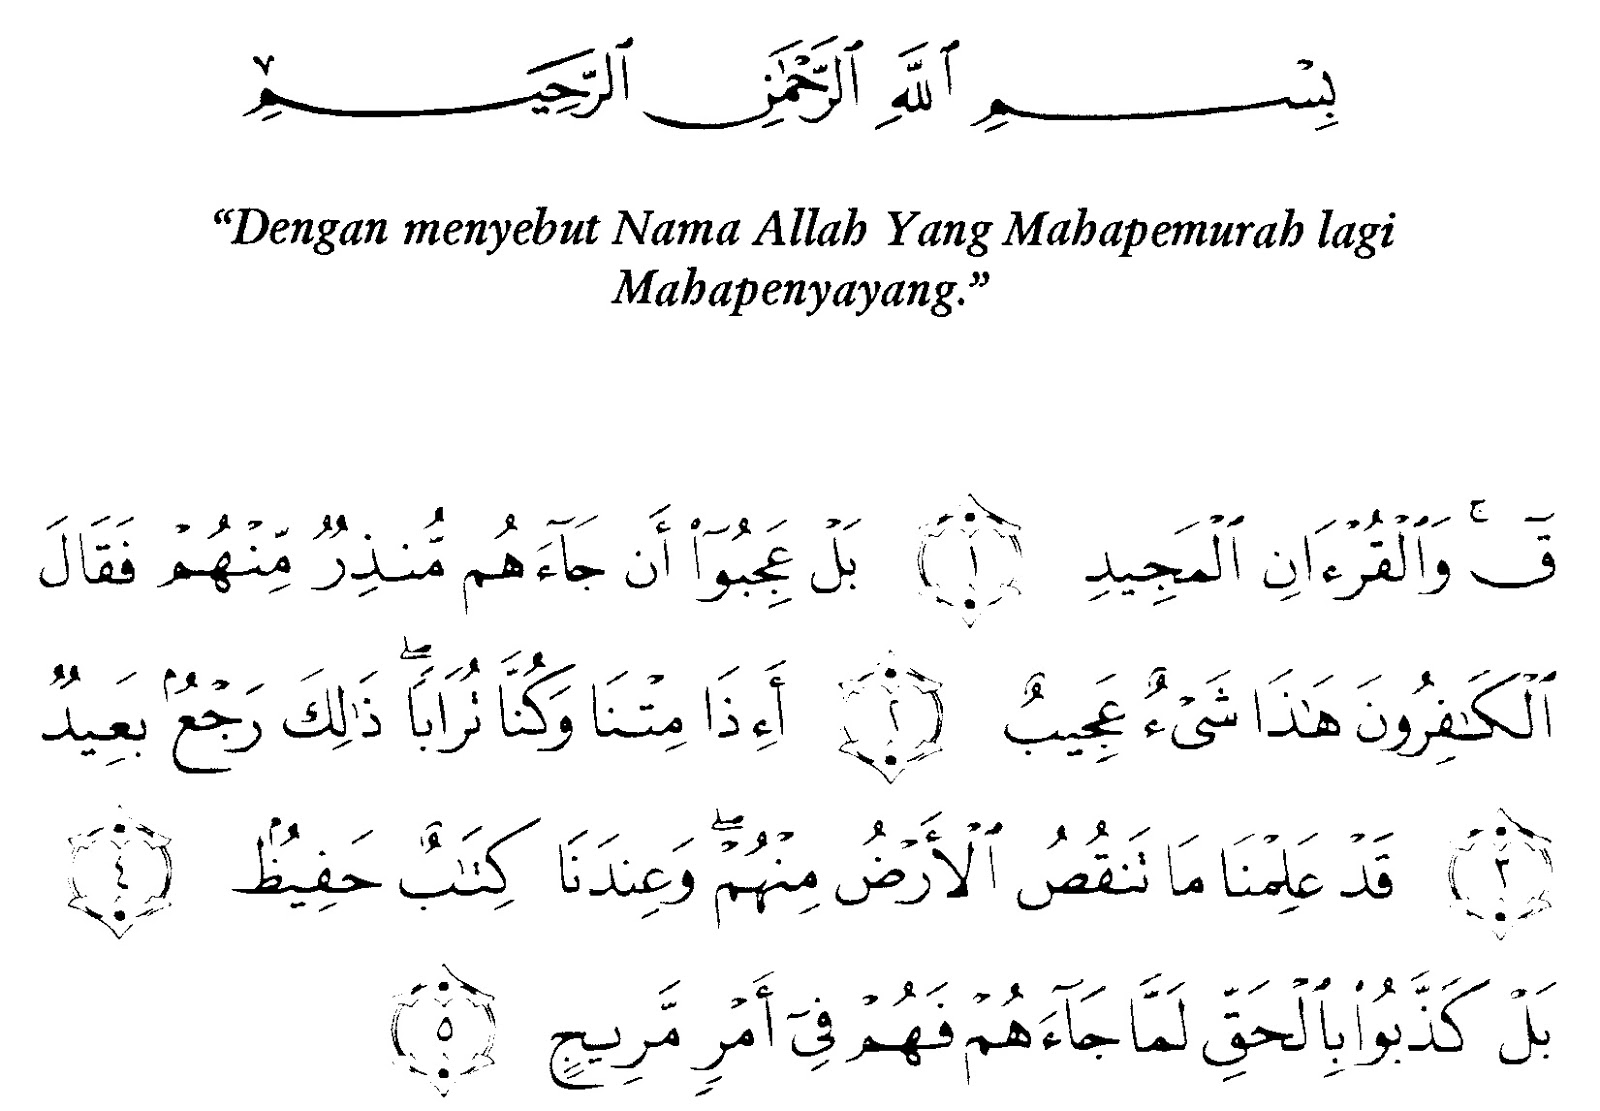 بِسْمِ ٱللَّهِ ٱلرَّحْمَٰنِ ٱلرَّحِيمِ ٧
“Dengan menyebut Nama Allah Yang Mahapemurah lagi
Mahapenyayang.”
قٓ ۚ وَٱلْقُرْءَانِ ٱلْمَجِيدِ ١ بَلْ عَجِبُوٓا۟ أَن جَآءَهُم مُّنذِرٌ مِّنْهُمْ فَقَالَ
ٱلْكَٰفِرُونَ هَٰذَا شَىْءٌ عَجِيبٌ ٢ أَءِذَا مِتْنَا وَكُنَّا تُرَابًا ۖ ذَٰلِكَ رَجْعٌۢ بَعِيدٌ
٣ قَدْ عَلِمْنَا مَا تَنقُصُ ٱلْأَرْضُ مِنْهُمْ ۖ وَعِندَنَا كِتَٰبٌ حَفِيظٌۢ ٤
بَلْ كَذَّبُوا۟ بِٱلْحَقِّ لَمَّا جَآءَهُمْ فَهُمْ فِىٓ أَمْرٍ مَّرِيجٍ ٥